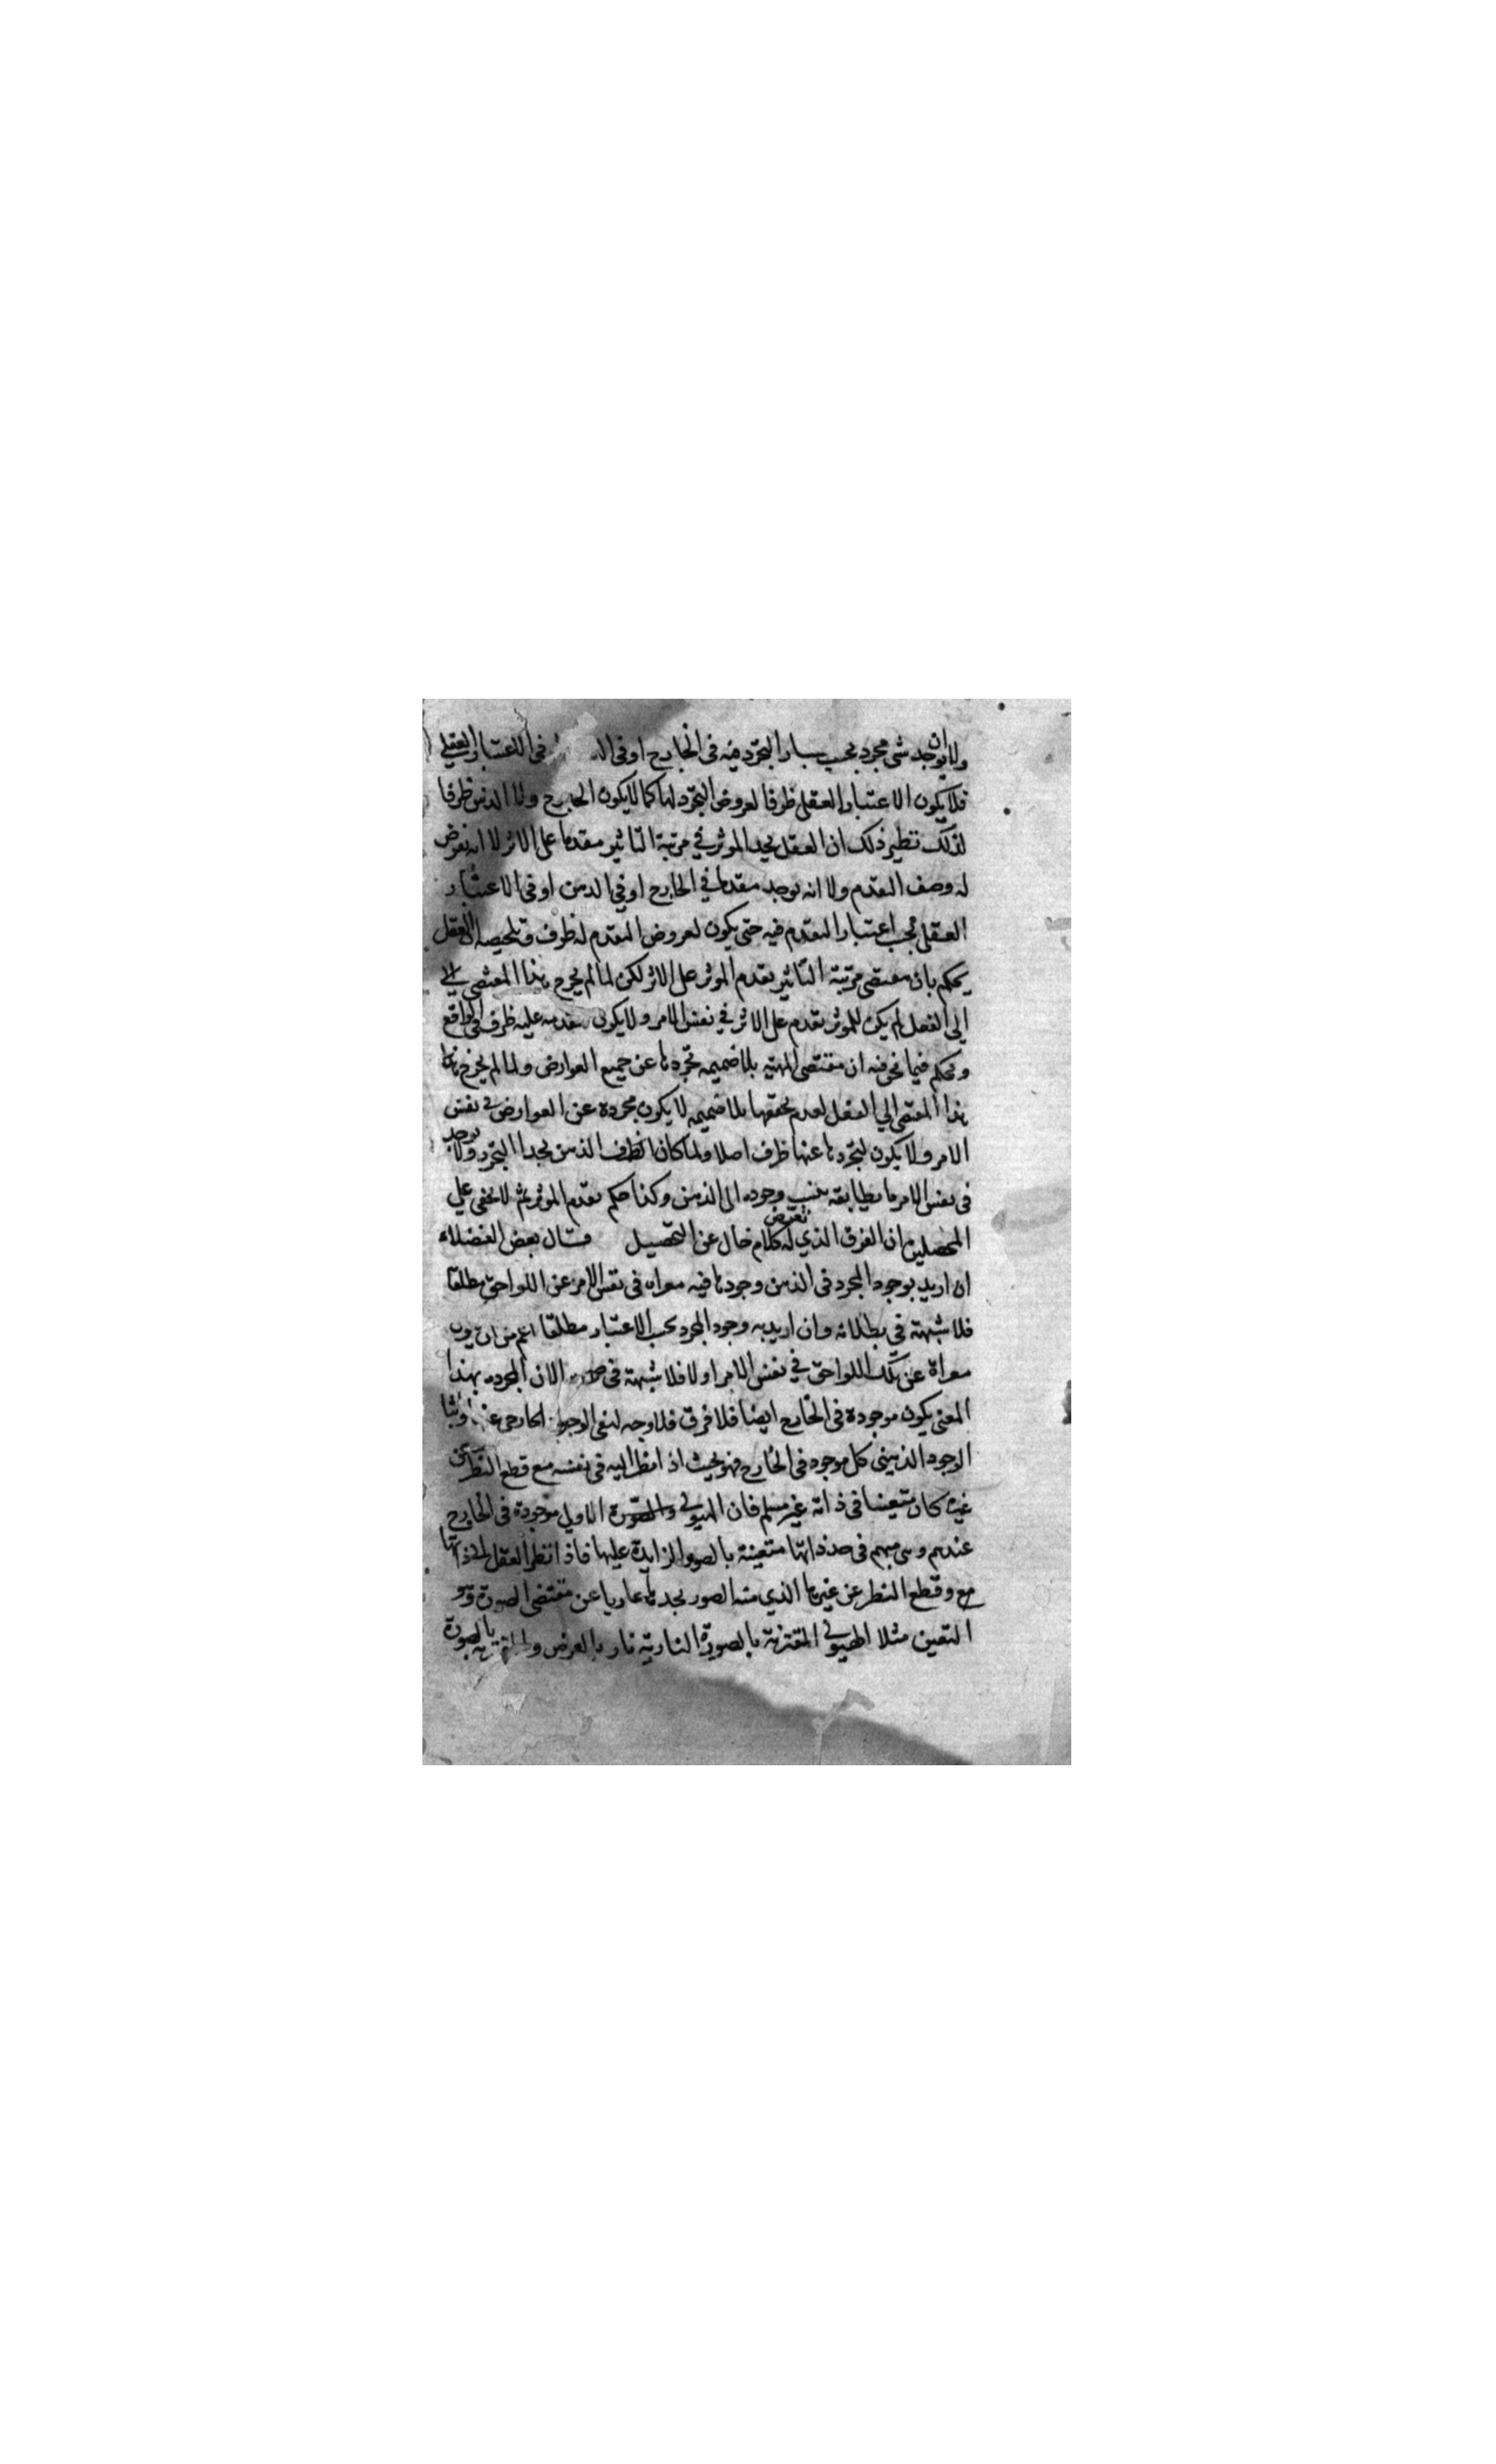 ولا ان يوجد شى مجرد بحسب اعتبار التجرد فيه فى الخارج او فى فى الاعتبار العقلى
فلا يكون الاعتبار العقلى ظرفا لعروض التجرد لها كما لا يكون الخارج ولا الذهن ظرفا
لذلك نظير ذلك ان العقل يجد الموثر في مرتبة التاثير مقدما على الاثر لا انه يعرض
له وصف التقدم ولا انه يوجد مقدما في الخارج او في الذهن او فى الاعتبار
العقلى بحسب اعتبار التقدم فيه حتى يكون لعروض التقدم له ظرف وتلخيصه ان العقل
يحكم بان مقتضى مرتبة التاثير تقدم الموثر على الاثر لكن لما لم يخرج هذا المقتضى الى
الى الفعل لم يكن للموثر تقدم على الاثر في نفس الامر ولا يكون لتقدمه عليه ظرف فى الواقع
ويحكم فيما نحن فيه ان مقتضى المهية بلا ضميمه تجردها عن جميع العوارض ولما لم يخرج هذا
هذا المقتضى الي الفعل لعدم تحققها بلا ضميمه لا يكون مجردة عن العوارض فى نفس
الامر ولا يكون لتجردها عنها ظرف اصلا ولما كان الذهن يجد التجرد ولا يوجد
فى نفس الامر ما يطابقه ينسب وجوده الى الذهن وكذا حكم تقدم الموثر ثم لا يخفى علي
المحصلين ان الفرق الذي تعرض له كلام خال عن التحصيل قال بعض الفضلاء
ان اريد بوجود المجرد فى الذهن وجودها فيه معراه فى نفس الامر عن اللواحق مطلقا
فلا شبهة في بطلانه وان اريد به وجود المجرد بحسب الاعتبار مطلقا اعم من ان يكون
معراة عن تلك اللواحق في نفس الامر او لا فلا شبهة فى الا ان المجرده بهذا
المعنى يكون موجودة فى الخارج ايضا فلا فرق فلا وجه لنفى الوجود الخارجى عنها واثبات
الوجود الذهنى كل موجود فى الخارج فهو بحيث اذا نظر اليه فى نفسه مع قطع النظر عن
غيره كان متعينا فى ذاته غير مسلم فان الهيولى والصورة الاولى موجودة فى الخارج
عندهم وهى مبهم فى حد ذاتها متعينة بالصور الزايدة عليها فاذا نظر العقل الى ذاتها
مع وقطع النظر عن غيرها الذي منه الصور يجدها عاريا عن مقتضى الصورة وهو
التعين مثلا الهيولى المقترنة بالصورة النارية نار بالعرض والمقترنه بالصورة